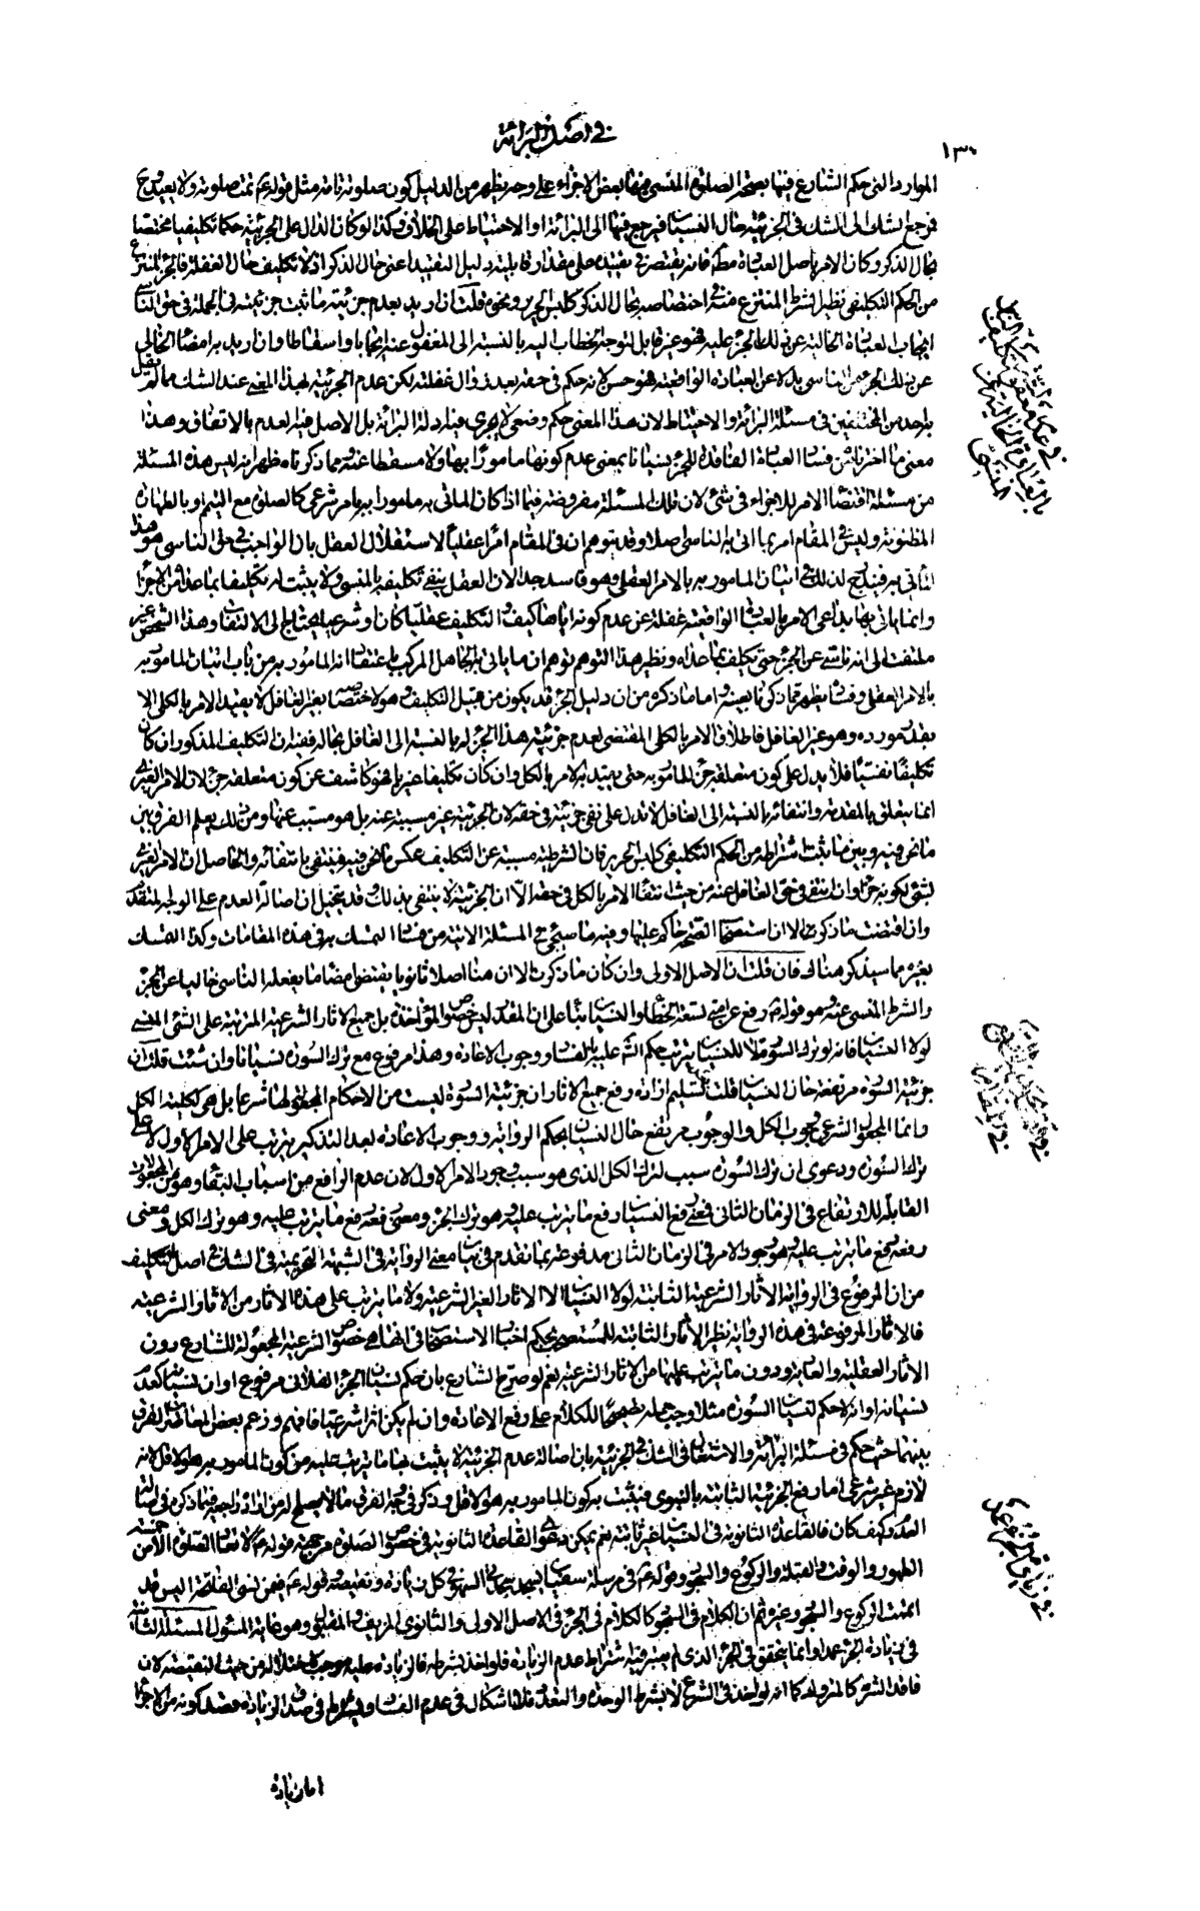 في اصل البرائة
١٣٠
الموارد التي حكم الشارع فيها بصحة الصلوة المنسي فيها بعض الاجزاء على وجه يظهر من الدليل كون صلوته تامة مثل قوله ع تمت صلوته ولا يعيد وح
فمرجع الشك الى الشك في الجزئية حال النسيان فيرجع فيها الى البرائة او الاحتياط على الخلاف وكذا لو كان الدال على الجزئية حكما تكليفيا مختصا
بحال الذكر وكان الامر باصل العبادة مطلقا فانه يقتصر في تقييده على مقدار قابلية دليل التقييد اعني حال الذكر اذ لا تكليف حال الغفلة فالجزء المنتزع
من الحكم التكليفي نظير الشرط المنتزع منه في اختصاصه بحال الذكر كلبس الحرير ونحوه قلت ان اريد بعدم جزئية ما ثبت جزئيته في الجملة في حق الناسي
ايجاب العبادة الخالية عن ذلك الجزء عليه فهو غير قابل لتوجه الخطاب اليه بالنسبة الى المغفول عنه ايجابا واسقاطا وان اريد به امضاء الخالي
عن ذلك الجزء من الناسي بدلا عن العبادة الواقعية فهو حسن لانه حكم في حقه بعد زوال غفلته لكن عدم الجزئية بهذا المعنى عند الشك مما لم يقل
به احد من المختلفين في مسئلة البرائة والاحتياط لان هذا المعنى حكم وضعي لا يجري فيه ادلة البرائة بل الاصل فيه العدم بالاتفاق وهذا
معنى ما اخترناه من فساد العبادة الفاقدة للجزء نسيانا بمعنى عدم كونها مامورا بها ولا مسقطا عنه ومما ذكرنا ظهر انه ليس هذه المسئلة
من مسئلة اقتضاء الامر للاجزاء في شئ لان تلك المسئلة مفروضة فيما اذا كان الماتي به مامورا به بامر شرعي كالصلوة مع التيمم او بالطهارة
المظنونة وليس في المقام امر بما اتى به الناسي اصلا وقد يتوهم ان في المقام امرا عقليا لاستقلال العقل بان الواجب في حق الناسي هو هذا
الماتي به فيندرج لذلك في اتيان المامور به بالامر العقلي وهو فاسد جدا لان العقل ينفي تكليفه بالمنسي ولا يثبت له تكليفا بما عداه من الاجزاء
وانما ياتي بها بداعي الامر بالعبادة الواقعية غفلة عن عدم كونه اياها كيف والتكليف عقليا كان او شرعيا يحتاج الى الالتفات وهذا الشخص غير
ملتفت الى انه ناس عن الجزء حتى يكلف بما عداه ونظير هذا التوهم توهم ان ما ياتي به الجاهل المركب باعتقاد انه المامور به من باب اتيان المامور به
بالامر العقلي وفساده يظهر مما ذكرنا بعينه واما ما ذكره من ان دليل الجزء قد يكون من قبيل التكليف وهو لاختصاصه بغير الغافل لا يقيد الامر بالكل الا
بقدر مورده وهو غير الغافل فاطلاق الامر بالكل المقتضي لعدم جزئية هذا الجزء له بالنسبة الى الغافل بحاله ففيه ان التكليف المذكور ان كان
تكليفا نفسيا فلا يدل على كون متعلقه جزءا للمامور به حتى يقيد به الامر بالكل وان كان تكليفا غيريا فهو كاشف عن كون متعلقه جزءا لان الامر الغيري
انما يتعلق بالمقدمة وانتفائه بالنسبة الى الغافل لا تدل على نفي جزئيته في حقه لان الجزئية غير مسببة عنه بل هو مسبب عنها ومن ذلك يعلم الفرق بين
ما نحن فيه وبين ما ثبت اشتراطه من الحكم التكليفي كلبس الحرير فان الشرطية مسببة عن التكليف عكس ما نحن فيه فينتفي بانتفائه والحاصل ان الامر الغيري
بشئ لكونه جزءا وان انتفى في حق الغافل عنه من حيث انتفاء الامر بالكل في حقه الا ان الجزئية لا ينتفي بذلك وقد يتخيل ان اصالة العدم على الوجه المتقدم
وان اقتضت ما ذكرت الا ان استصحاب الصحة حاكم عليها وفيه ما سيجئ في المسئلة الاتية من فساد التمسك به في هذه المقامات وكذا التمسك
بغيره مما سيذكر هناك فان قلت ان الاصل الاولى وان كان ما ذكرت الا ان هنا اصلا ثانويا يقتضي امضاء ما يفعله الناسي خاليا عن الجزء
والشرط المنسي عنه وهو قوله ص رفع عن امتي تسعة الخطاء والنسيان بناء على ان المقدر ليس خصوص المؤاخذة بل جميع الاثار الشرعية المترتبة على الشئ المنسي
لولا النسيان فانه لو ترك السورة مثلا للنسيان يترتب حكم الشرع عليه بالفساد ووجوب الاعادة وهذا مرفوع مع ترك السورة نسيانا وان شئت قلت ان
جزئية السورة مرتفعة حال النسيان قلت بعد تسليم ارادة رفع جميع الاثار ان جزئية السورة ليست من الاحكام المجعولة لها شرعا بل هي ككلية الكل
وانما المجعول الشرعي وجوب الكل والوجوب مرتفع حال النسيان بحكم الرواية ووجوب الاعادة بعد التذكر يترتب على الامر الاول لا على
ترك السورة ودعوى ان ترك السورة سبب لترك الكل الذي هو سبب وجود الامر الاول لان عدم الرافع من اسباب البقاء وهو من المجعولات
القابلة للارتفاع في الزمان الثاني فمعنى رفع النسيان رفع ما يترتب عليه وهو ترك الجزء ومعنى رفعه رفع ما يترتب عليه وهو ترك الكل ومعنى
رفعه رفع ما يترتب عليه وهو وجود الامر في الزمان الثاني مدفوعة بما تقدم في بيان معنى الرواية في الشبهة التحريمية في الشك في اصل التكليف
من ان المرفوع في الرواية الاثار الشرعية الثابتة لولا النسيان لا الاثار الغير الشرعية ولا ما يترتب على هذه الاثار من الاثار الشرعية
فالاثار المرفوعة في هذه الرواية نظير الاثار الثابتة للمستصحب بحكم اخبار الاستصحاب في انها هي خصوص الشرعية المجعولة للشارع دون
الاثار العقلية والعادية ودون ما يترتب عليها من الاثار الشرعية نعم لو صرح الشارع بان حكم نسيان الجزء الفلاني مرفوع او ان نسيانه كعدم
نسيانه او انه لا حكم لنسيان السورة مثلا وجب حمله تصحيحا للكلام على رفع الاعادة وان لم يكن اثرا شرعيا فافهم وزعم بعض المعاصرين الفرق
بينهما حيث حكم في مسئلة البرائة والاشتغال في الشك في الجزئية بان اصالة عدم الجزئية لا يثبت بها ما يترتب عليه من كون المامور به هو الاقل لانه
لازم غير شرعي اما رفع الجزئية الثابتة بالنبوي فيثبت به كون المامور به هو الاقل وذكر في وجه الفرق ما لا يصلح له من اراده راجعه فيما ذكره في اصالة
العدم وكيف كان فالقاعدة الثانوية في النسيان غير ثابتة نعم يمكن دعوى القاعدة الثانوية في خصوص الصلوة من جهة قوله ع لا تعاد الصلوة الا من خمسة
الطهور والوقت والقبلة والركوع والسجود وقوله ع في مرسلة سفيان يسجد سجدتي السهو في كل زيادة ونقيصة وقوله ع فيمن نسي الفاتحة اليس قد
اتممت الركوع والسجود وغيره ثم ان الكلام في الشرط كالكلام في الجزء في الاصل الاولى والثانوي المزيف والمقبول وهو غاية المسئول المسئلة الثانية
في زيادة الجزء عمدا وانما يتحقق في الجزء الذي لم يعتبر فيه اشتراط عدم الزيادة فلو اخذ بشرطه فالزيادة عليه موجب لاختلاله من حيث النقيصة لان
فاقد الشرط كالمتروك كما انه لو اخذ في الشرع لا بشرط الوحدة والتعدد فلا اشكال في عدم الفساد ويشترط في صدق الزيادة قصد كونه من الاجزاء
اما زيادة